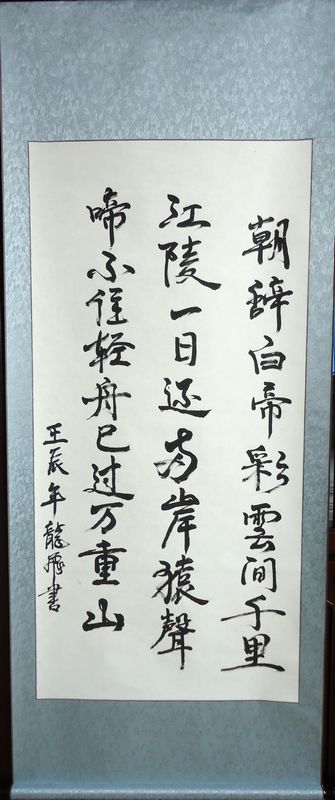 朝辞白帝彩雲间千里
江陵一日还两岸猿聲
啼不住轻舟已过万重山
壬辰年龍飛書